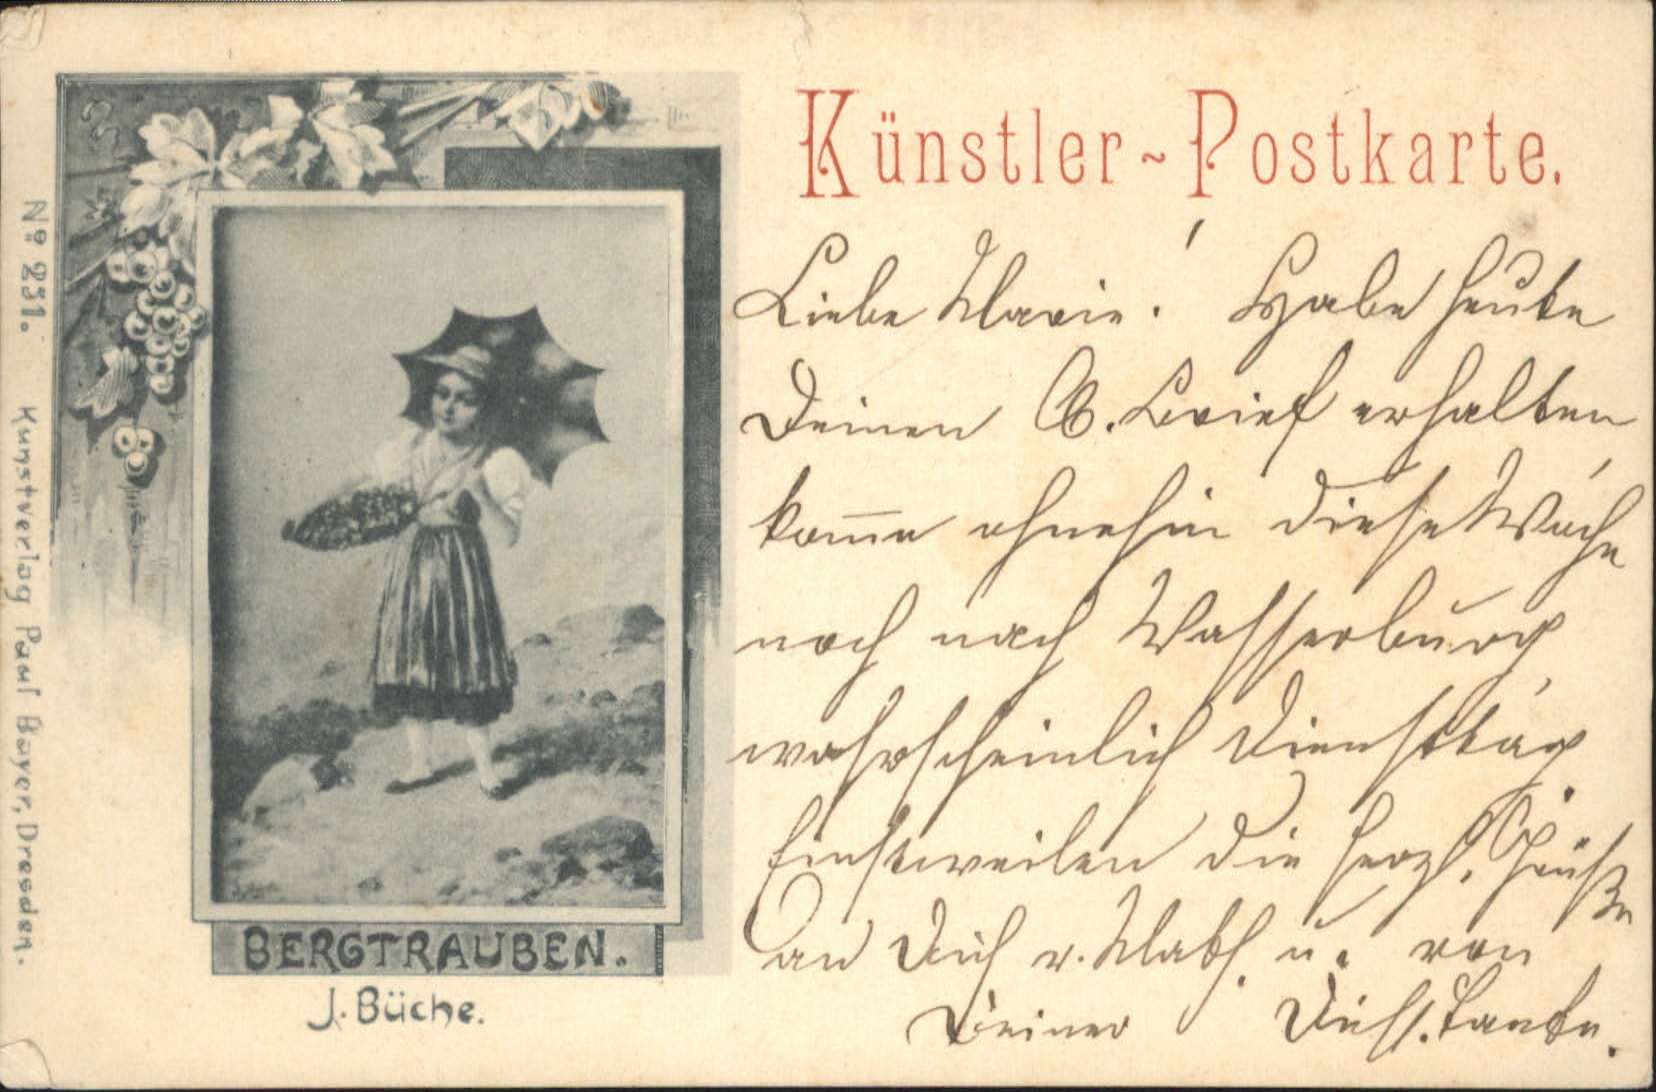 Künstler-Postkarte.
Liebe Marie! Habe heute
Deinen l. Brief erhalten
kom̄e ohnehin diese Woche
noch nach Wasserburg,
wahrscheinlich Dienstag.
Einstweilen die herzl. Grüße
an Dich u. u. von
Deiner Tante.
BERGTRAUBEN.
J. Büche.
No 231. Kunstverlag Paul Bayer, Dresden.